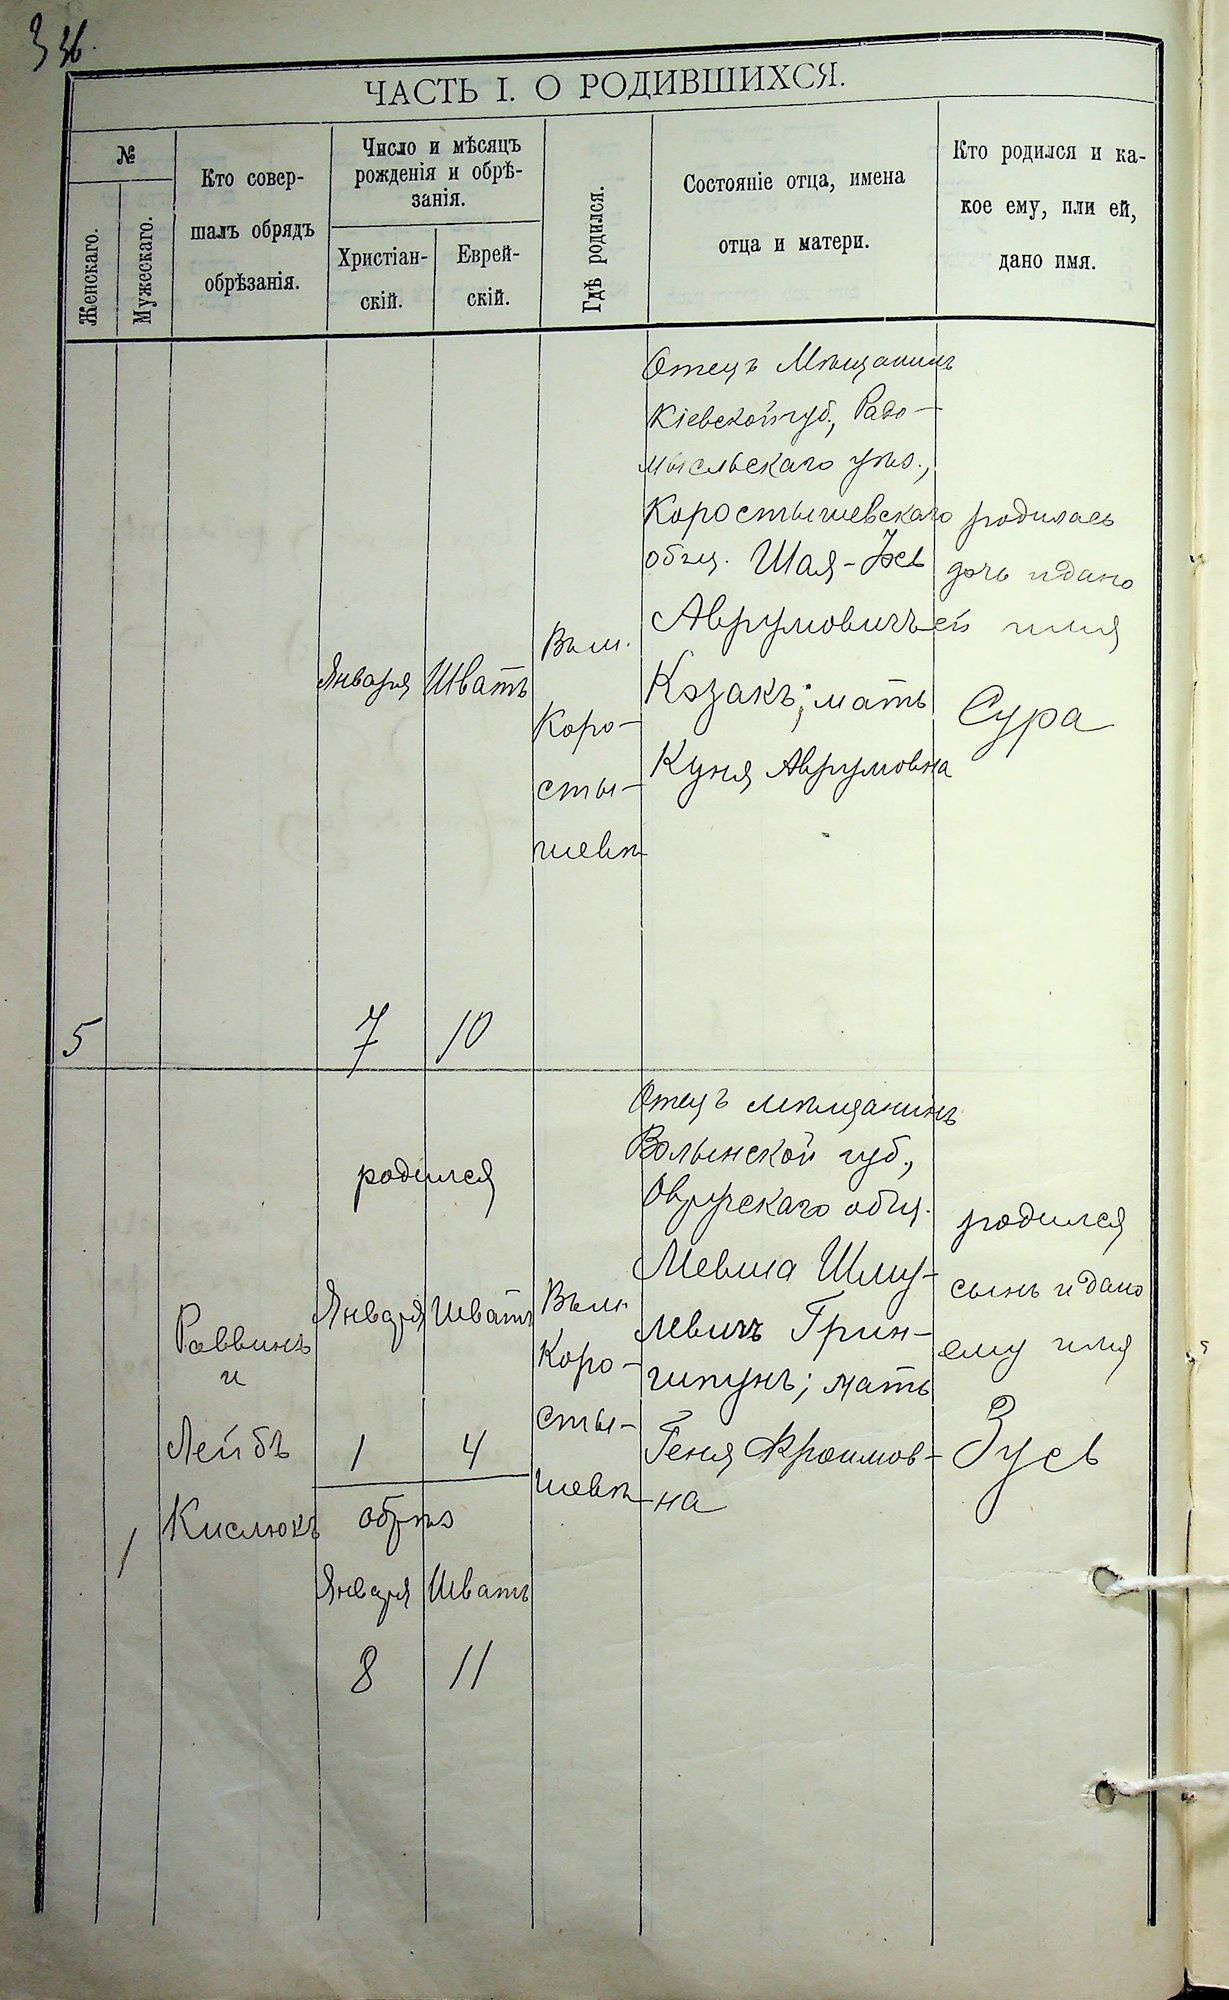 336.
ЧАСТЬ I. О РОДИВШИХСЯ.
№
Женскаго.
Мужескаго.
Кто совер-
шалъ обрядъ
обрѣзанія.
Число и мѣсяцъ
рожденія и обрѣ-
занія.
Христіан-
скій.
Еврей-
скій.
Гдѣ родился.
Состояніе отца, имена
отца и матери.
Кто родился и ка-
кое ему, или ей,
дано имя.
5
Января
7
Шватъ
10
Въ м.
Коро-
сты-
шевѣ
Отецъ Мѣщанинъ
Кіевской губ., Радо-
мысльскаго уѣз.,
Коростышевскаго
общ. Шая-
Аврумовичъ
Козакъ; мать
Куня Аврумовна
родилась
дочь и дано
ей имя
Сура
1
Раввинъ
и
Лейбъ
Кислюкъ
родился
Января Шватъ
1 4
обрѣз
Января Шватъ
8 11
Въ м.
Коро-
сты-
шевѣ
Отецъ мѣщанинъ
Волынской губ.,
Овручскаго общ.
Мевша Шму-
левичъ Грин-
шпунъ; мать
Геня Фроимов-
на
родился
сынъ и дано
ему имя
Зусь